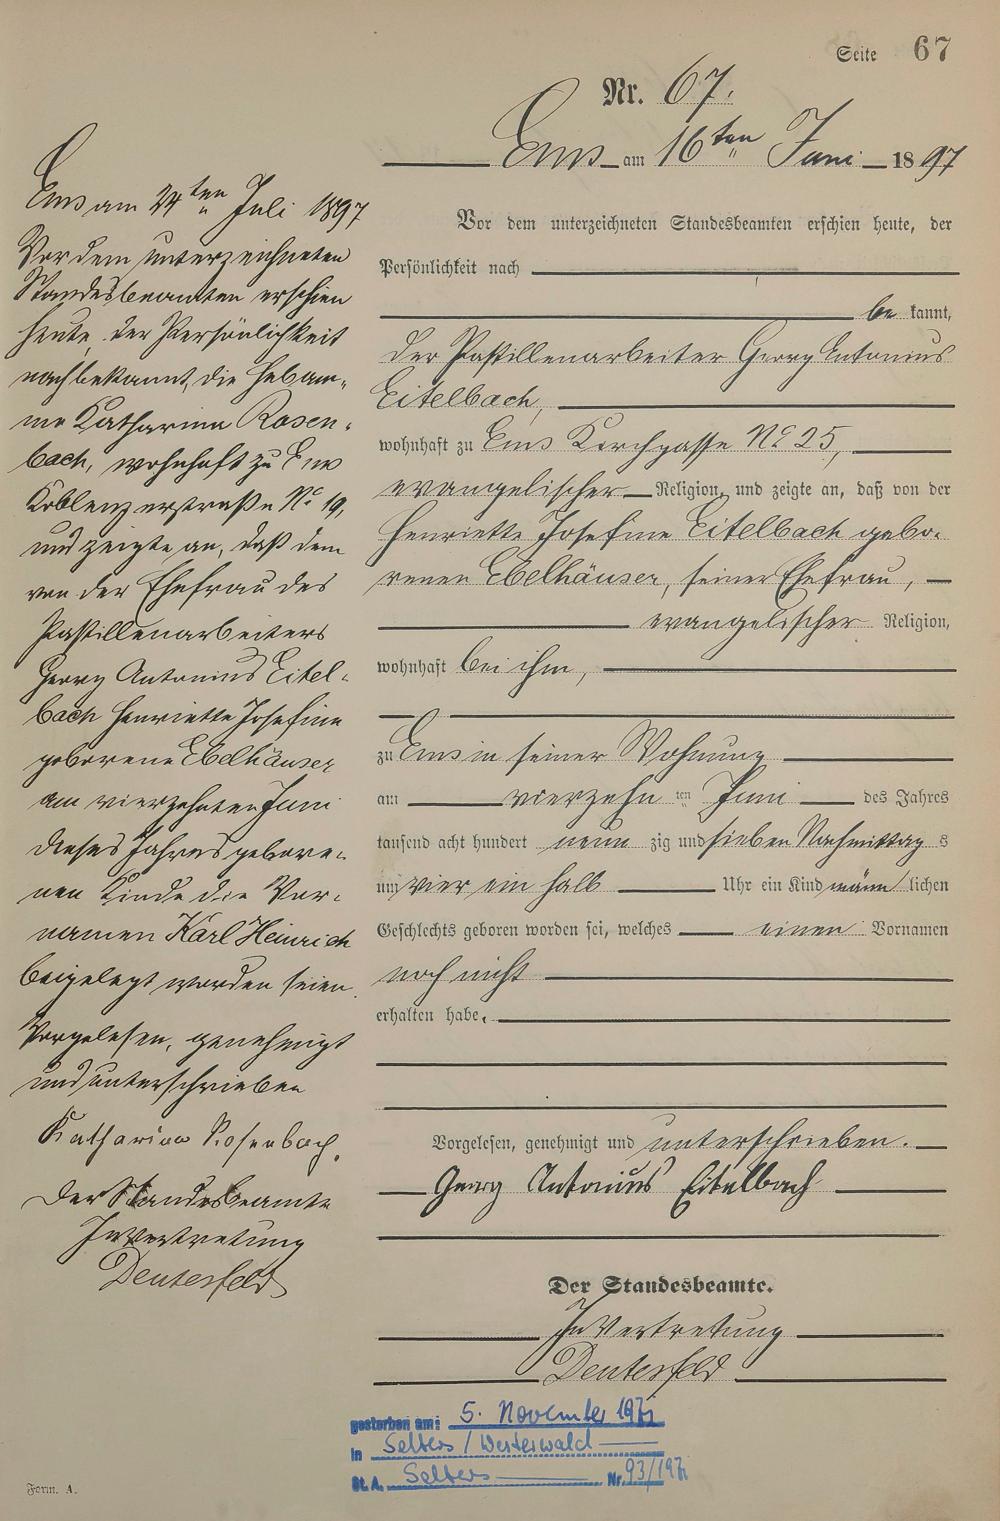 Seite 67
Nr. 67.
Ems am 16ten Juni 1897
Vor dem unterzeichneten Standesbeamten erschien heute, der
Persönlichkeit nach
bekannt,
der Pastillenarbeiter Georg Antonius
Eitelbach,
wohnhaft zu Ems Kirchgasse No 25,
evangelischer Religion, und zeigte an, daß von der
Henriette Josefine Eitelbach gebo-
renen Ebelhäuser, seiner Ehefrau,
evangelischer Religion,
wohnhaft bei ihm,
zu Ems in seiner Wohnung
am vierzehnten Juni des Jahres
tausend acht hundert neunzig und sieben Nachmittags
um vier ein halb Uhr ein Kind männlichen
Geschlechts geboren worden sei, welches einen Vornamen
noch nicht
erhalten habe.
Vorgelesen, genehmigt und unterschrieben.
Georg Antonius Eitelbach
Der Standesbeamte.
In Vertretung
Deutesfeld
Ems am 24ten Juli 1897
Vor dem unterzeichneten
Standesbeamten erschien
heute, der Persönlichkeit
nach bekannt, die Hebam-
me Katharina Rosen-
bach, wohnhaft zu Ems
Koblenzerstraße No 19,
und zeigte an, daß dem
von der Ehefrau des
Pastillenarbeiters
Georg Antonius Eitel-
bach Henriette Josefine
geborene Ebelhäuser
am vierzehnten Juni
dieses Jahres gebore-
nen Kinde die Vor-
namen Karl Heinrich
beigelegt worden seien.
Vorgelesen, genehmigt
und unterschrieben
Katharina Rosenbach.
Der Standesbeamte
In Vertretung
Deutesfeld
gestorben am: 5. November 1971
in Selters / Westerwald
St. A. Selters Nr. 93/1971
Form. A.